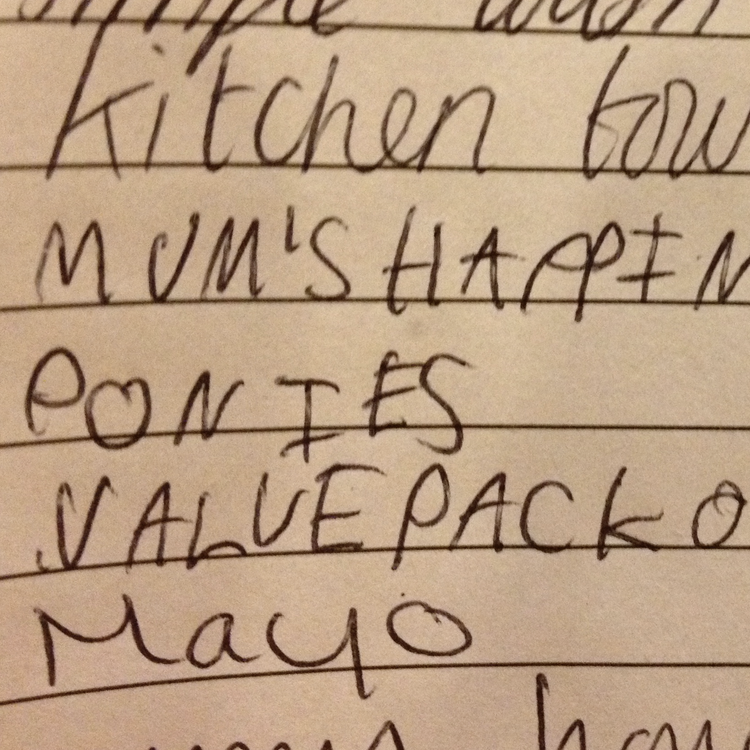 kitchen tow
MUM'S HAPPIN
PONIES
VALUE PACK O
Mayo